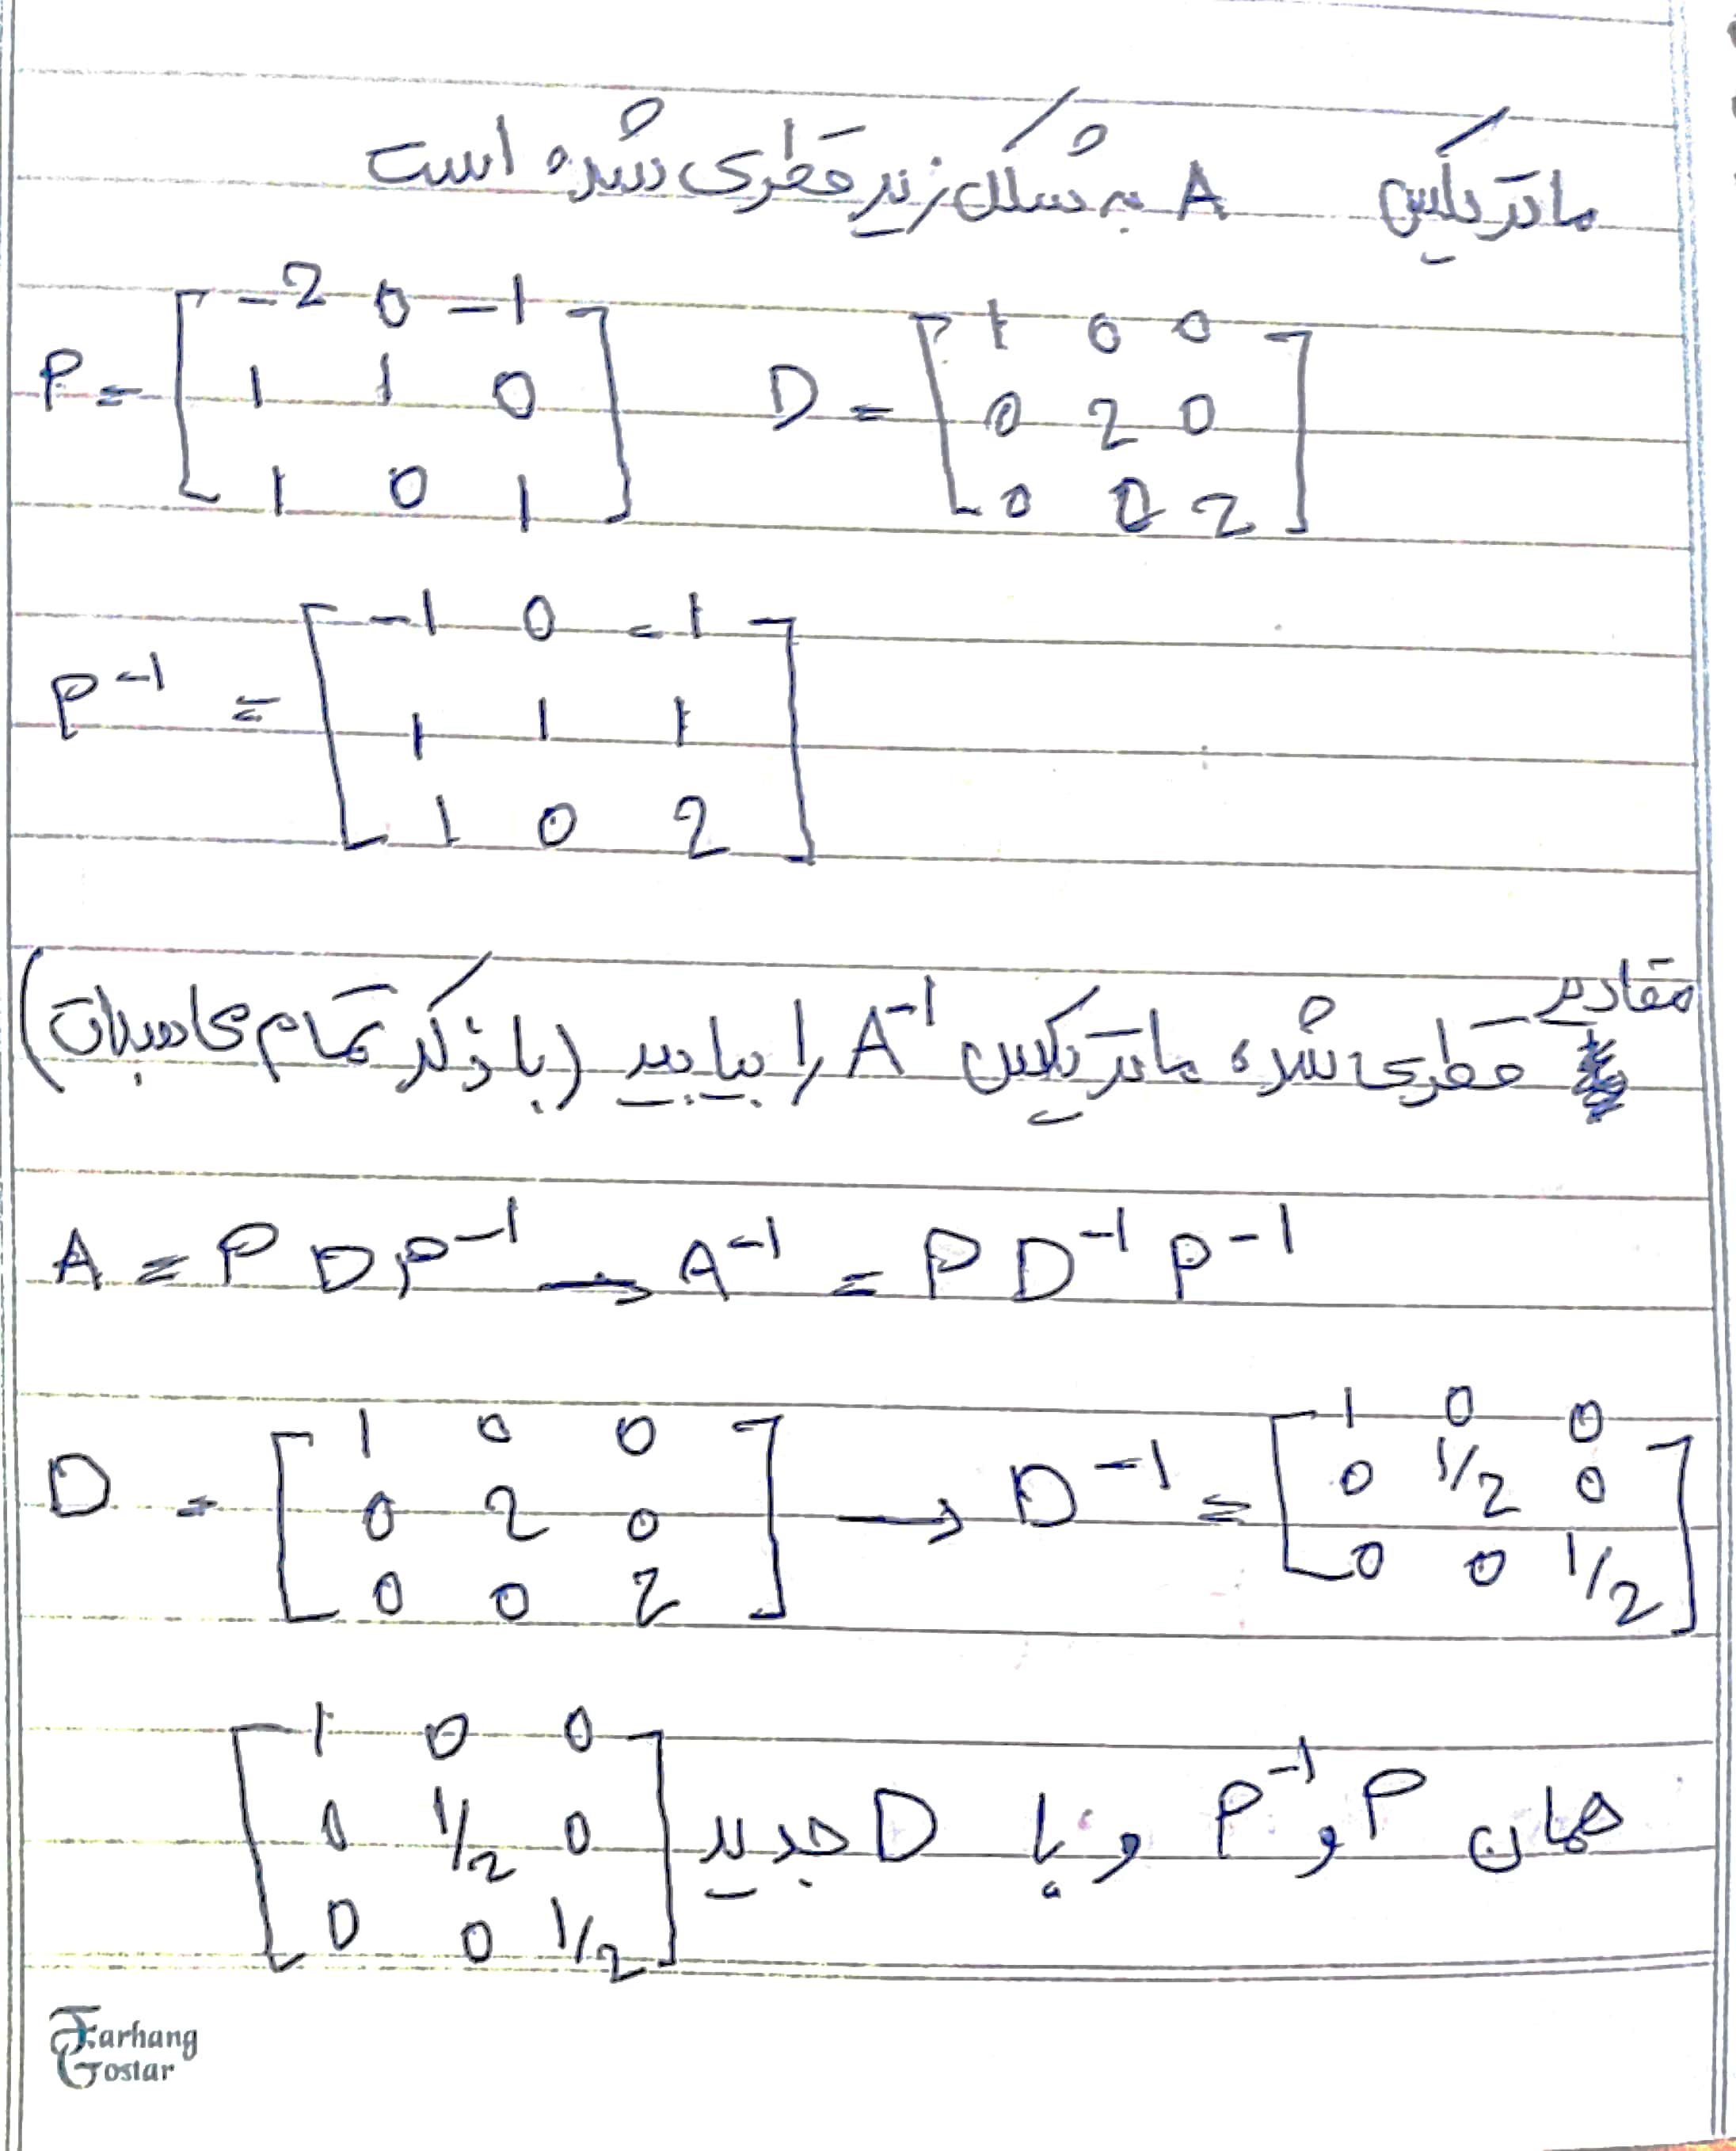 ماتریس A به شکل زیر قطری شده است
P = [ -2 0 -1 ] D = [ 1 0 0 ]
[ 1 1 0 ] [ 0 2 0 ]
[ 1 0 1 ] [ 0 0 2 ]
P⁻¹ = [ -1 0 -1 ]
[ 1 1 1 ]
[ 1 0 2 ]
مقادیر قطری شده ماتریس A⁻¹ را بیابید (با ذکر تمام محاسبات)
A = P D P⁻¹ → A⁻¹ = P D⁻¹ P⁻¹
D = [ 1 0 0 ] → D⁻¹ = [ 1 0 0 ]
[ 0 2 0 ] [ 0 1/2 0 ]
[ 0 0 2 ] [ 0 0 1/2 ]
همان P و P⁻¹ و با D جدید [ 1 0 0 ]
[ 0 1/2 0 ]
[ 0 0 1/2 ]
Farhang
Gostar